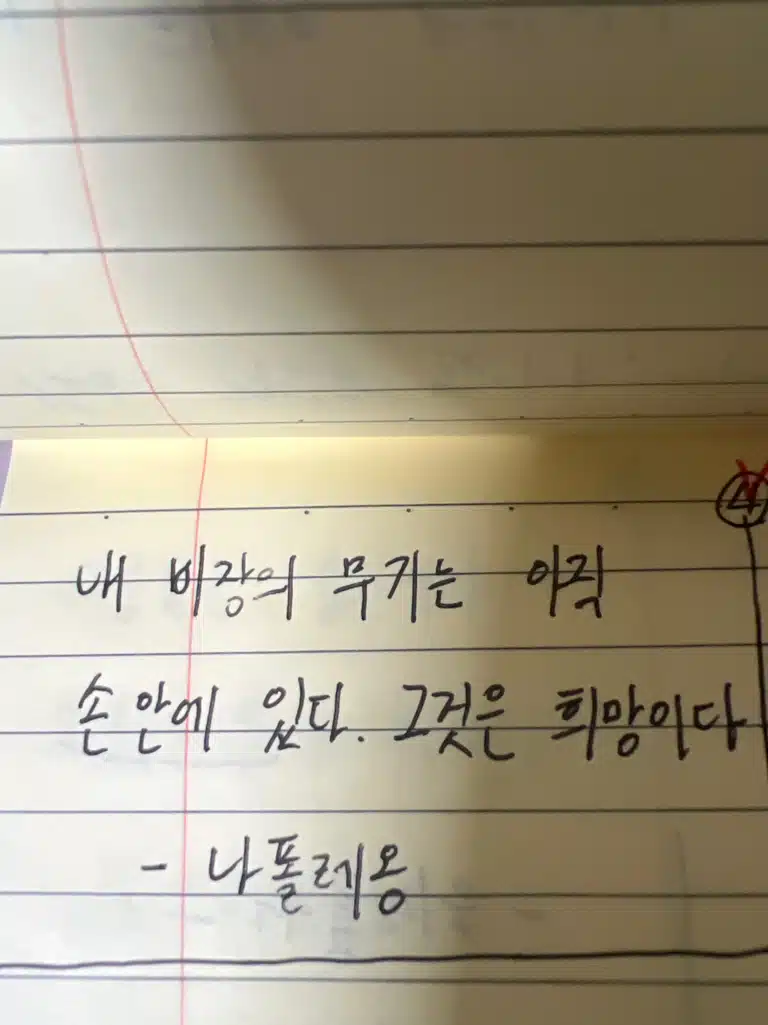 ④
내 비장의 무기는 아직
손안에 있다. 그것은 희망이다
- 나폴레옹